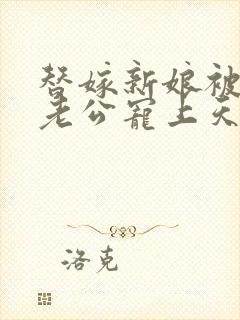 替嫁新娘被
老公宠上天
洛克